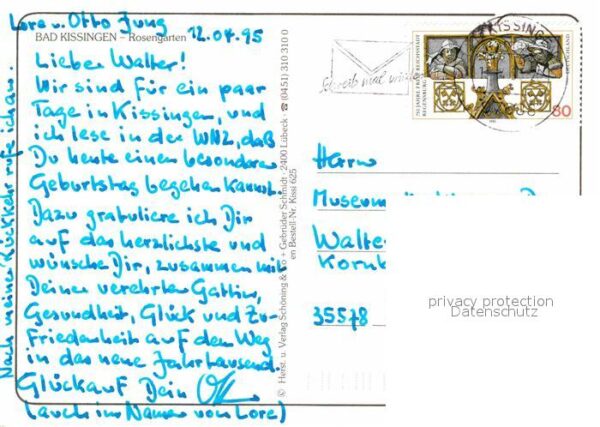 Lore u. Otto Jung
BAD KISSINGEN – Rosengarten
12.04.95
Lieber Walter!
Wir sind für ein paar
Tage in Kissingen, und
ich lese in der WNZ, daß
Du heute einen besonderen
Geburtstag begehen kannst.
Dazu gratuliere ich Dir
auf das herzlichste und
wünsche Dir, zusammen mit
Deiner verehrten Gattin,
Gesundheit, Glück und Zu-
friedenheit auf dem Weg
in das neue Jahrtausend.
Glückauf Dein
(auch im Namen von Lore)
Nach meiner Rückkehr rufe ich an.
© Herst. u. Verlag Schöning & Co + Gebrüder Schmidt · 2400 Lübeck · ☎ (0451) 310 310 0
en Bestell-Nr. Kissi 625
Schreib mal
KISSING
750 JAHRE FREIE REICHSSTADT
REGENSBURG
DEUTSCHLAND
80
Herrn
Museum
Walter
Kornb
35578
privacy protection
Datenschutz